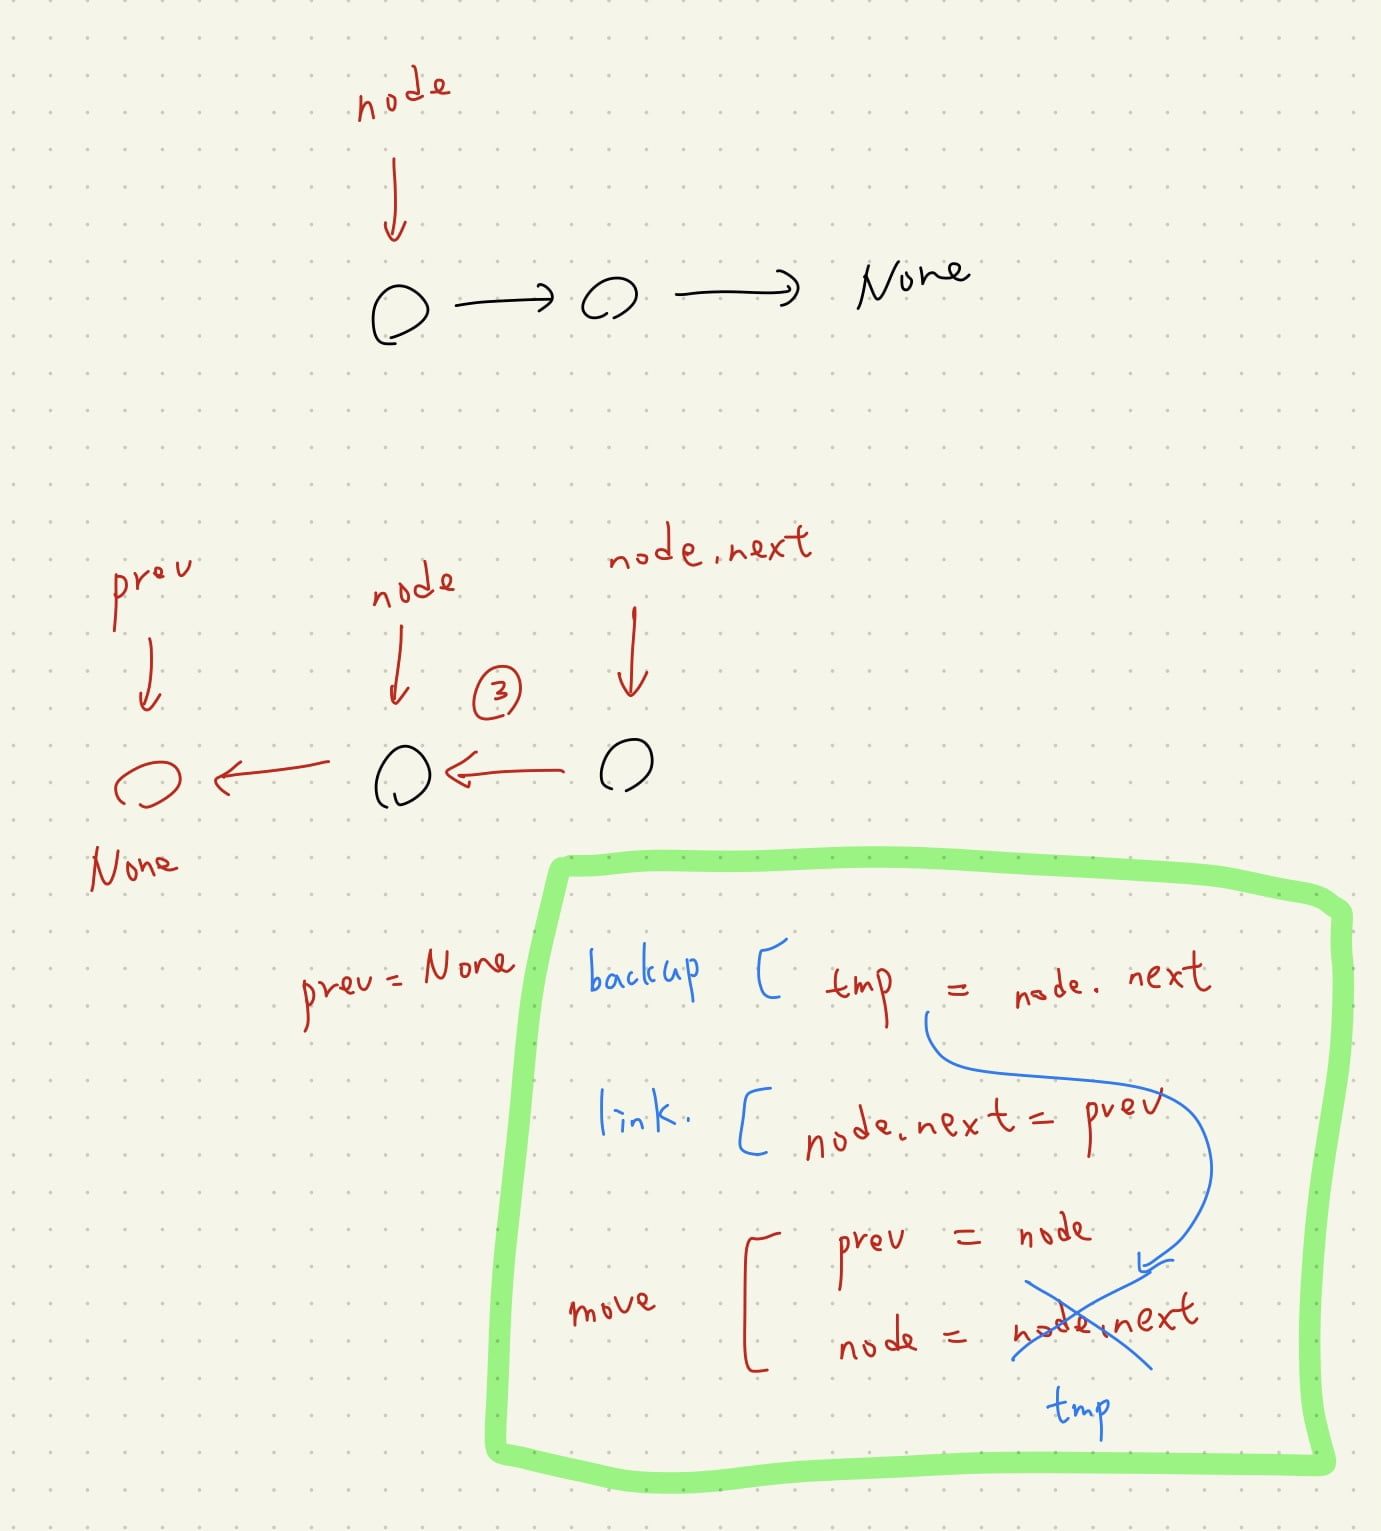 node
None
prev
node
node.next
3
None
prev = None
backup [ tmp = node. next
link. [ node.next = prev
move [ prev = node
node = node.next
tmp